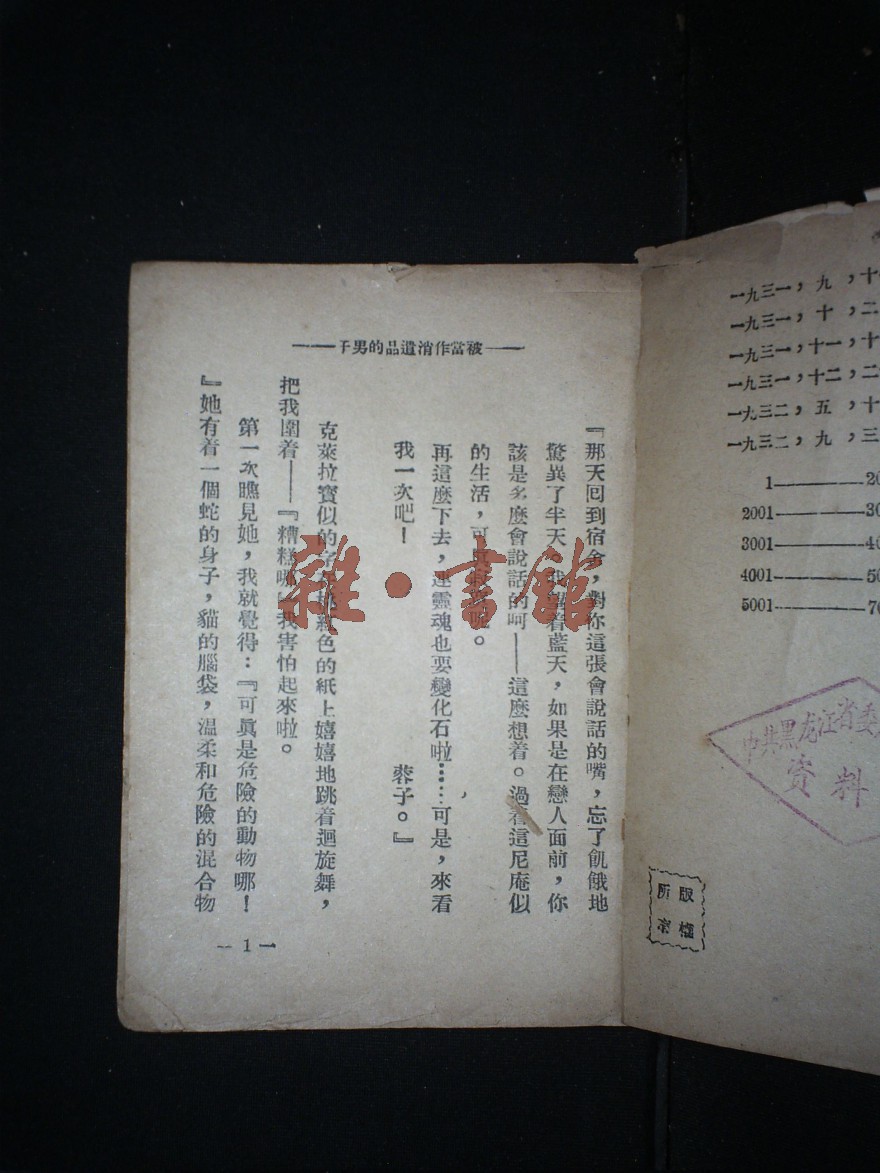 被當作消遣品的男子
『那天回到宿舍，對你這張會說話的嘴，忘了飢餓地
驚異了半天。我望着藍天，如果是在戀人面前，你
該是多麼會說話的呵——這麼想着。過着這尼庵似
的生活，可真寂寞呢。
再這麼下去，連靈魂也要變化石啦……可是，來看
我一次吧！
蓉子。』
克萊拉寶似的字在桃紅色的紙上嬉嬉地跳着迴旋舞，
把我圍着——『糟糕哪』我害怕起來啦。
第一次瞧見她，我就覺得：『可眞是危險的動物哪！
』她有着一個蛇的身子，貓的腦袋，溫柔和危險的混合物
— 1 —
雜·書館
一九三一，九，十
一九三一，十，二
一九三一，十一，十
一九三一，十二，二
一九三二，五，十
一九三二，九，三
1———20
2001———30
3001———40
4001———50
5001———70
中共黑龙江省委
资料
版權
所有